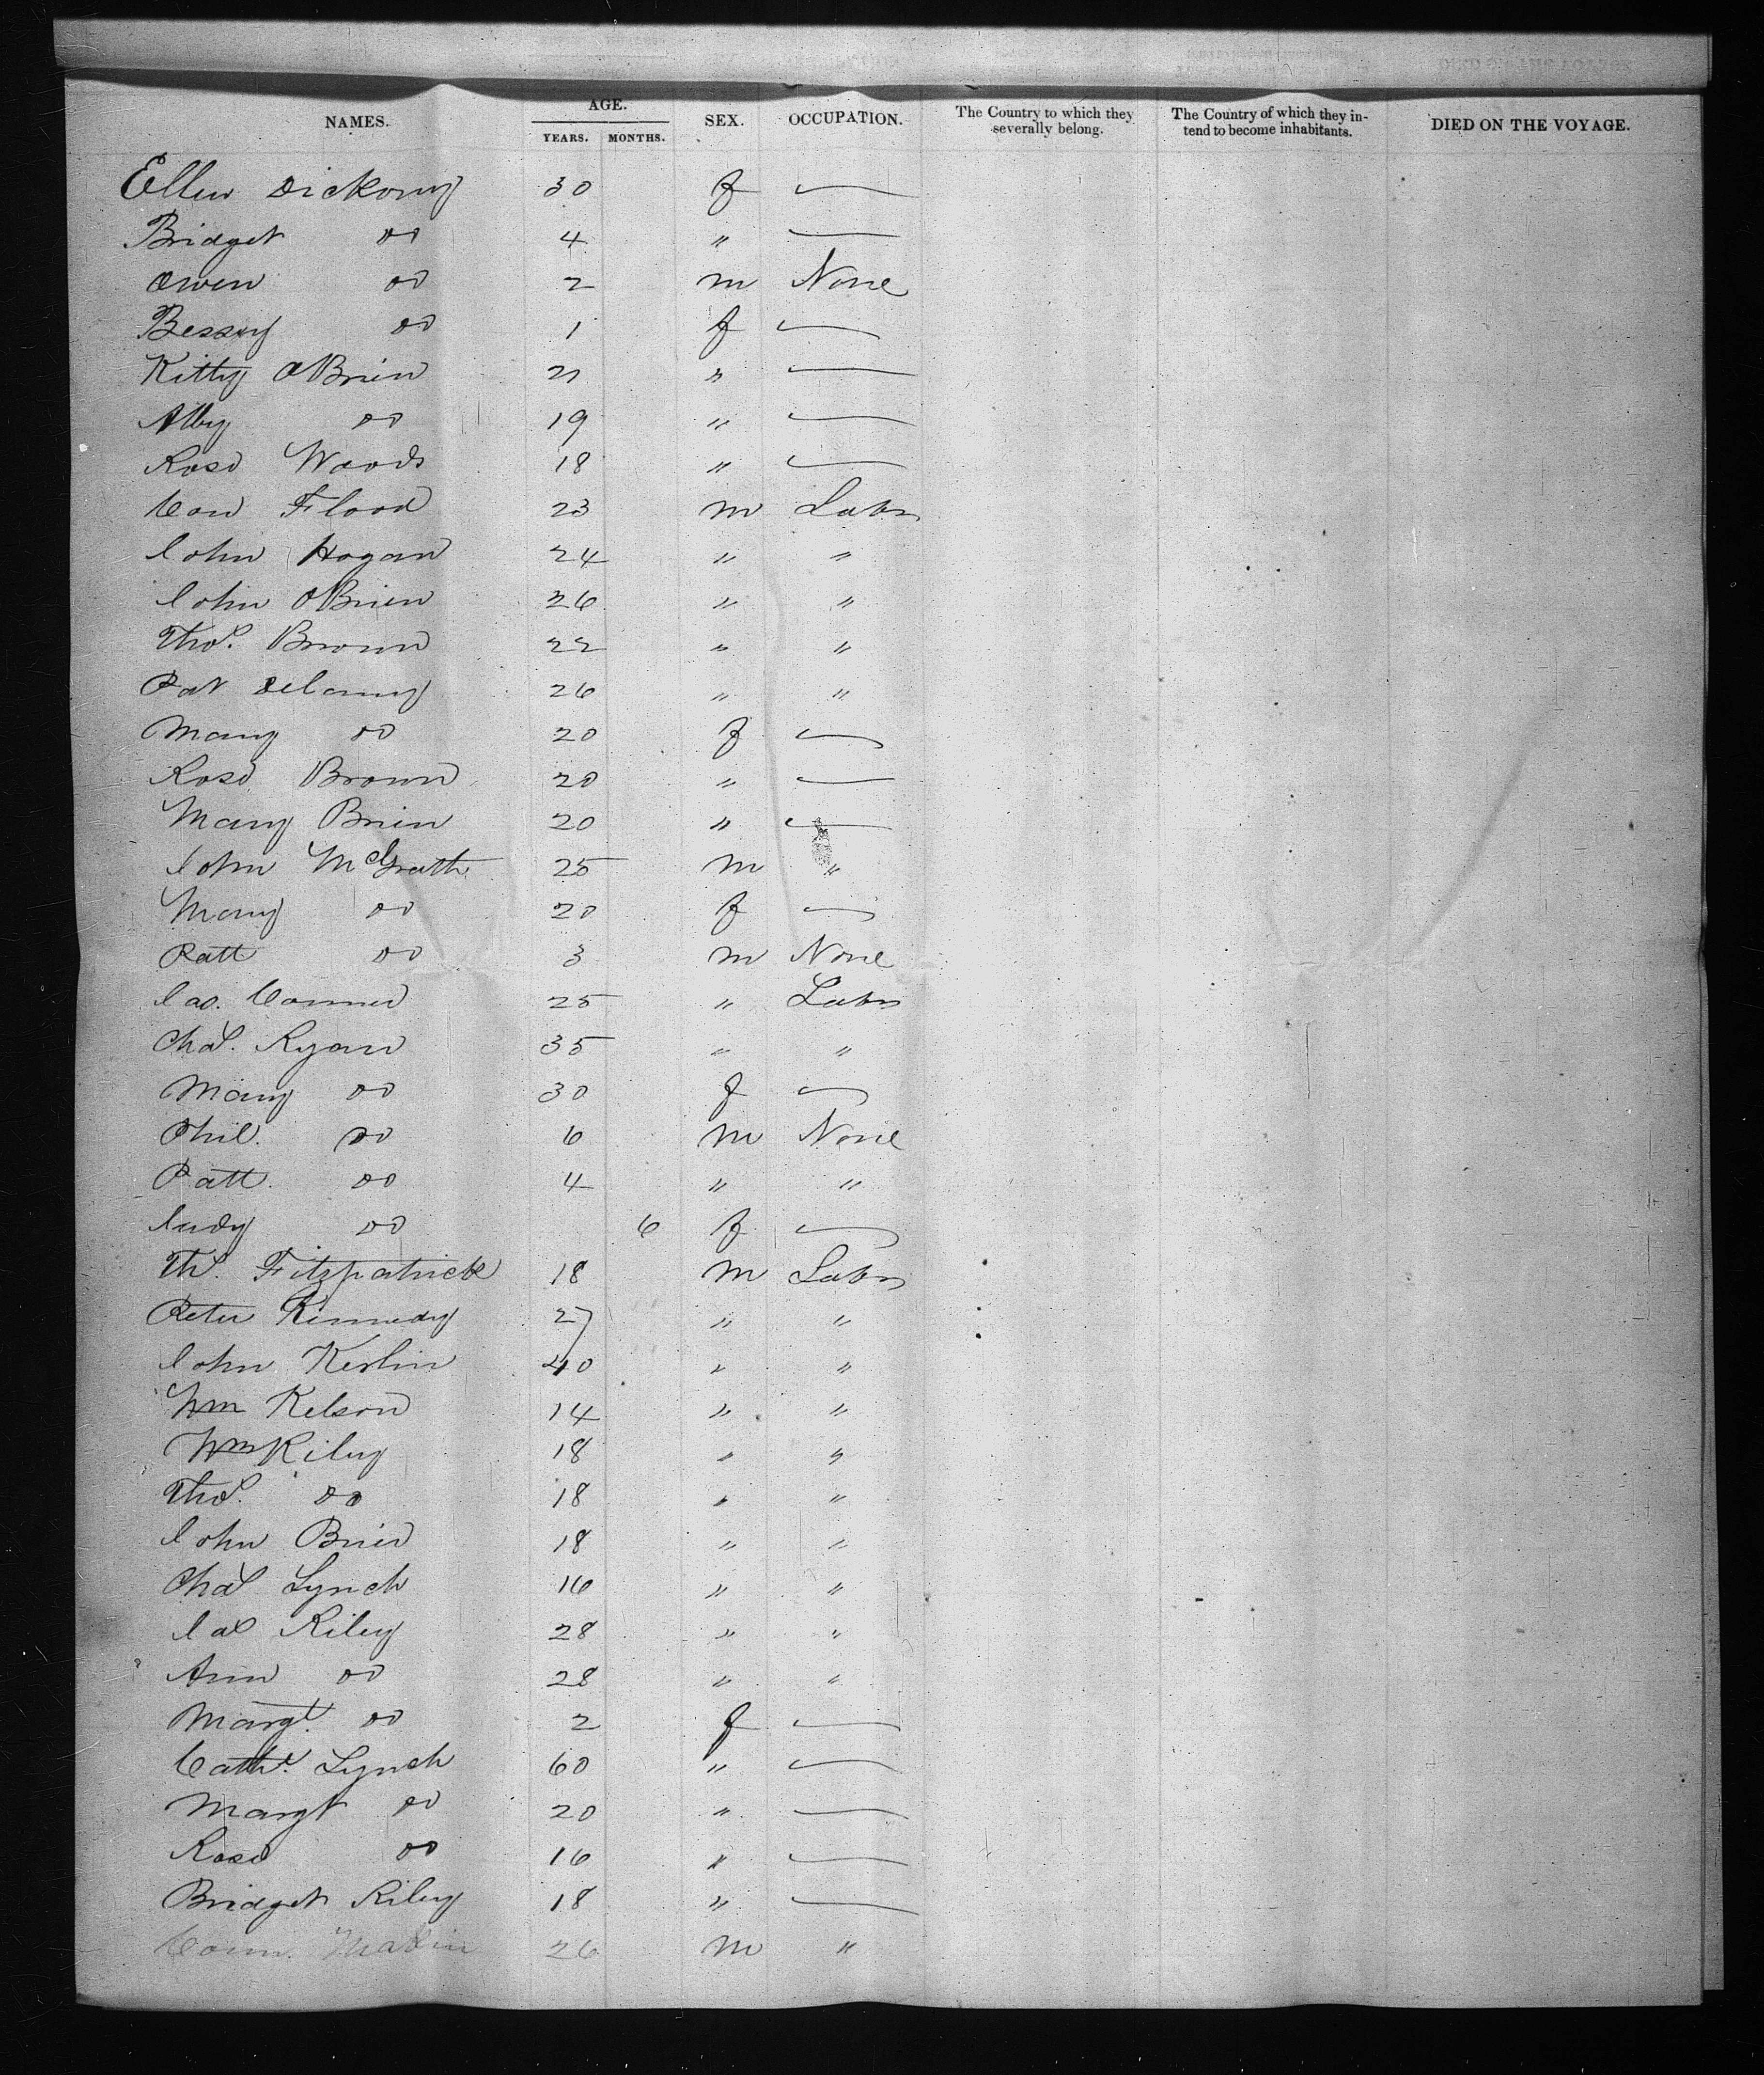 NAMES. AGE. YEARS. MONTHS. SEX. OCCUPATION. The Country to which they severally belong. The Country of which they intend to become inhabitants. DIED ON THE VOYAGE.
Ellen Dickony 30 f —
Bridget do 4 " —
Owen do 2 m None
Bessy do 1 f —
Kitty OBrien 21 " —
Alby do 19 " —
Rose Woods 18 " —
Con Flood 23 m Labr
John Hogan 24 " "
John OBrien 26 " "
Thos. Brown 22 " "
Pat Delanny 26 " "
Mary do 20 f —
Rose Brown 20 " —
Mary Brien 20 " —
John McGrath 25 m "
Mary do 20 f —
Patt do 3 m None
Jas. Conner 25 " Labr
Chas. Ryan 35 " "
Mary do 30 f —
Phil. do 6 m None
Patt. do 4 " "
Judy do 6 f —
Ths. Fitzpatrick 18 m Labr
Peter Kennedy 27 " "
John Kerlin 40 " "
Wm Kelson 14 " "
Wm Riley 18 " "
Thos. do 18 " "
John Brien 18 " "
Chas Lynch 16 " "
Jas Riley 28 " "
Ann do 28 " "
Margt. do 2 f —
Cathe. Lynch 60 " —
Margt do 20 " —
Rose do 16 " —
Bridget Riley 18 " —
26 m "